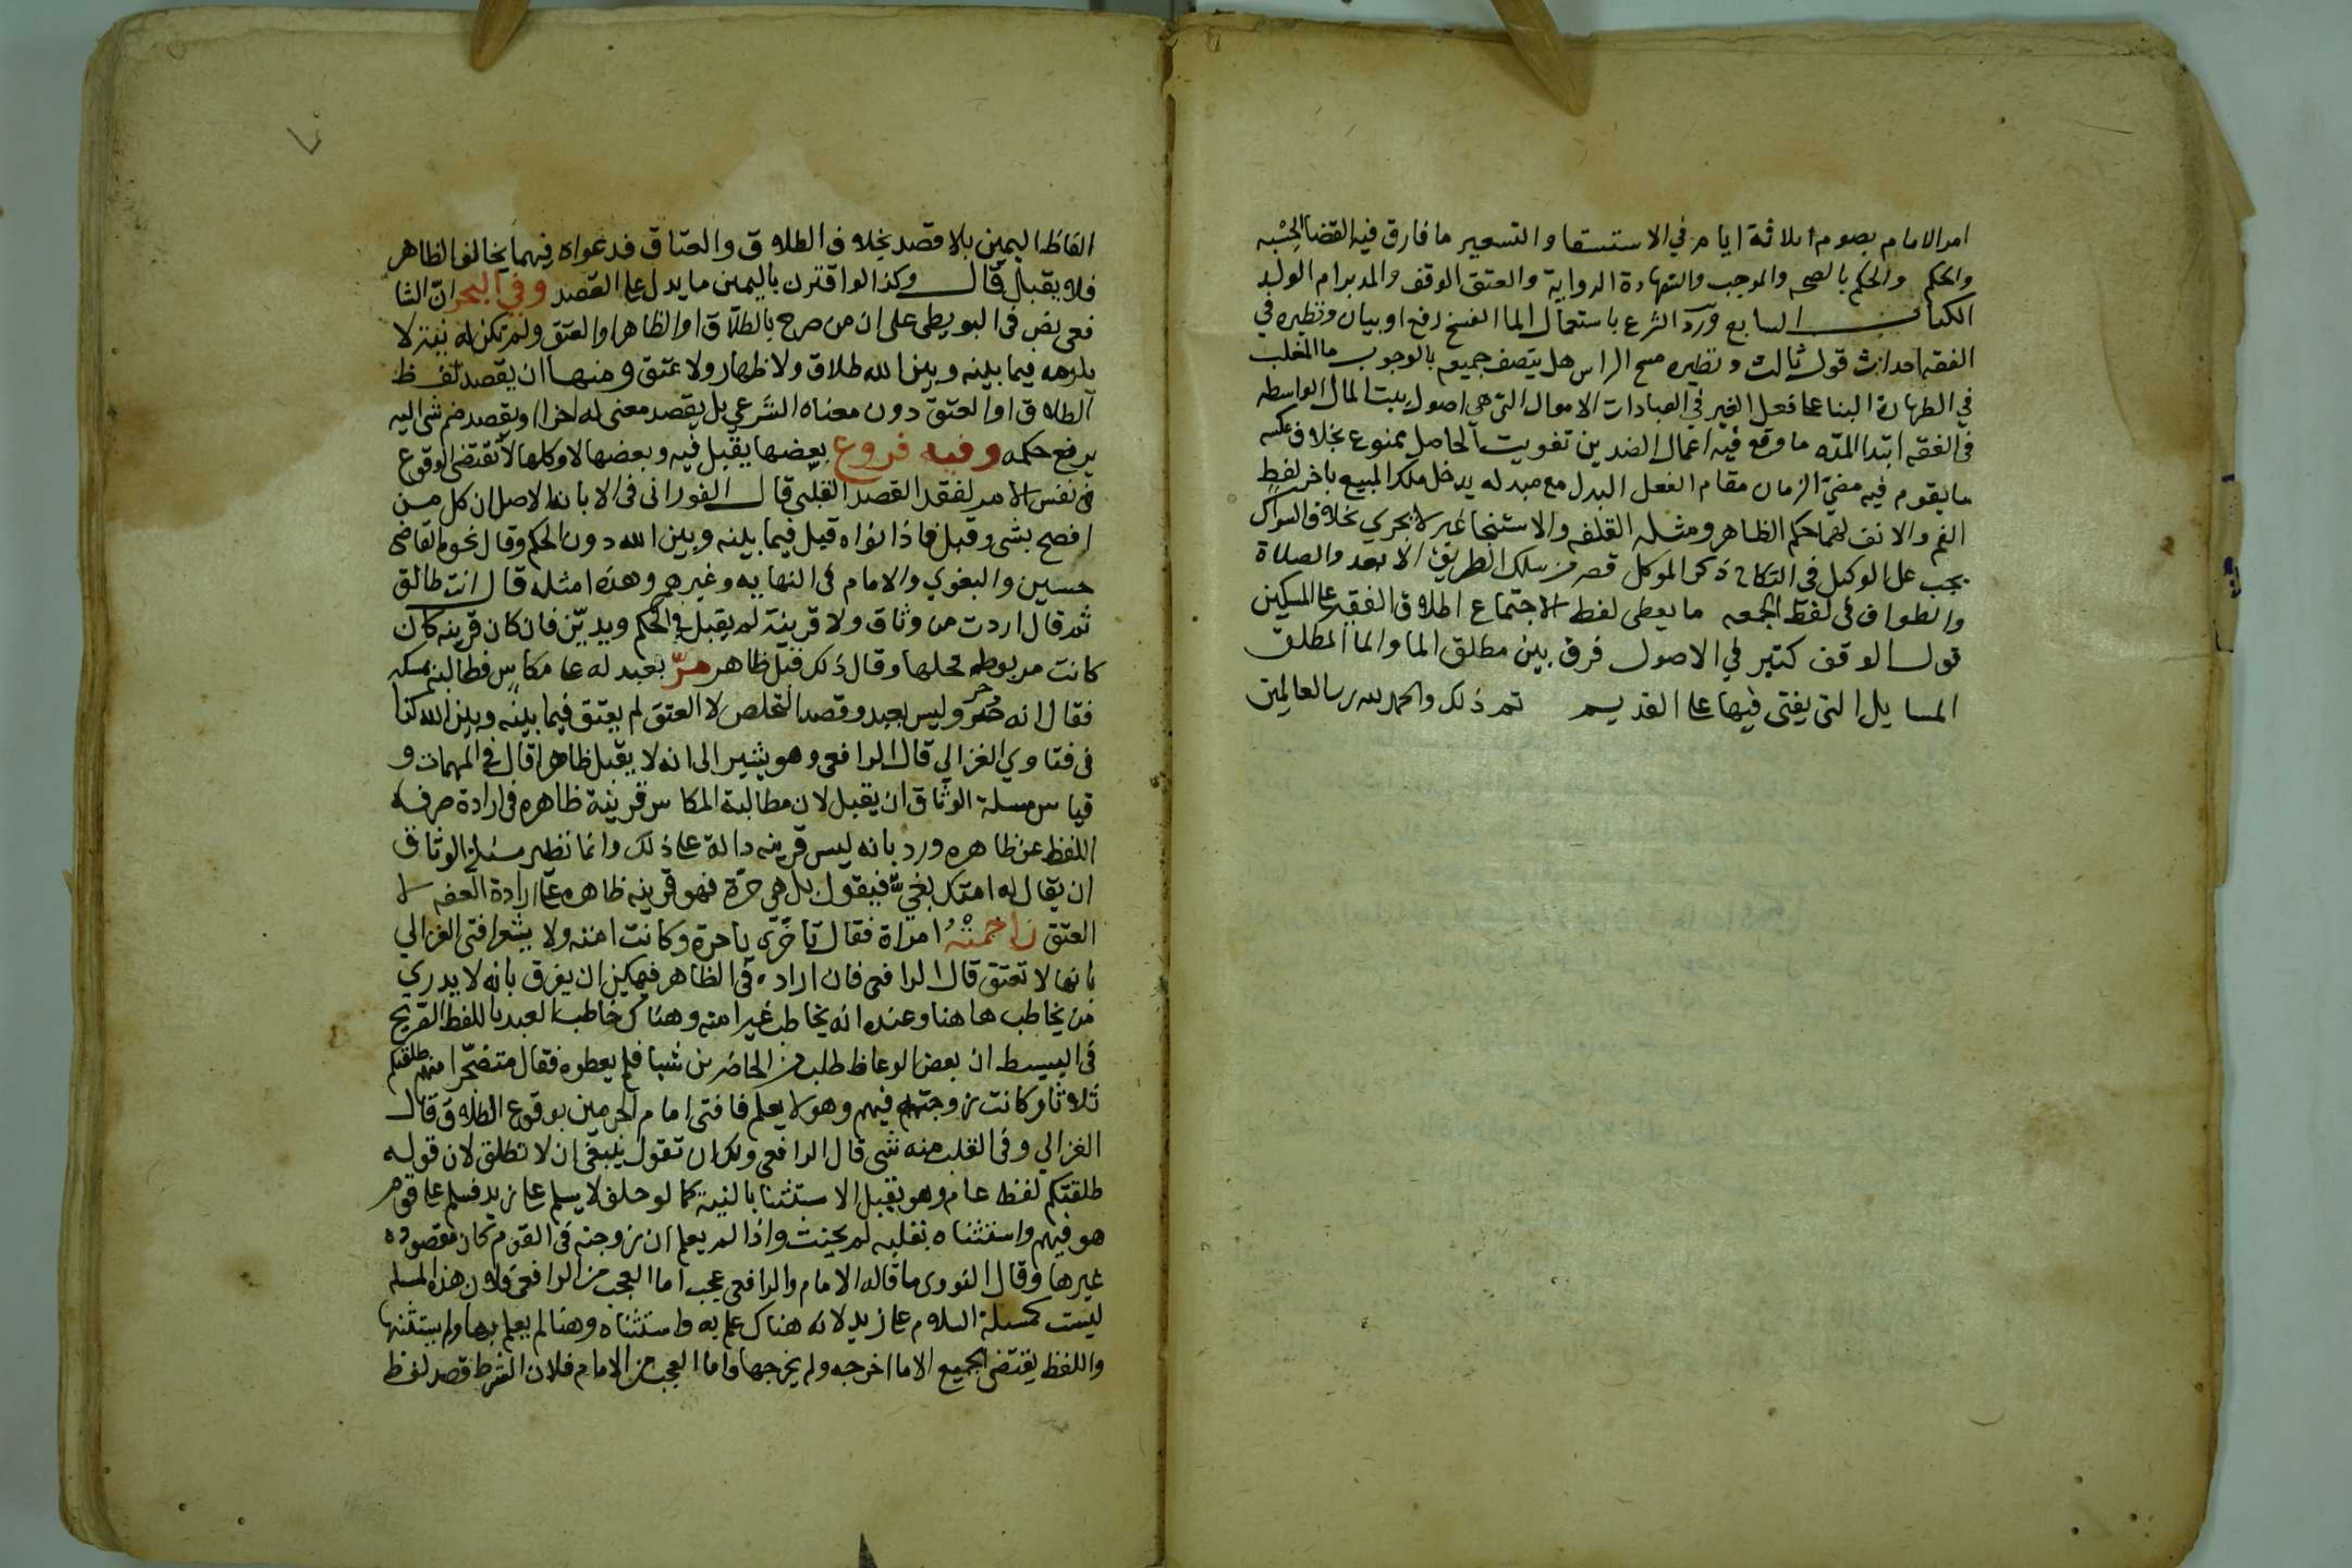 امر الامام بصوم ثلاثة ايام في الاستسقا والتسعير ما فارق فيه القضا الحسبه
والحكم والحكم بالصحه والموجب والشهادة الرواية والعتق الوقف والمدبر ام الولد
الكتاب السابع ورد الشرع باستعمال الما الفسخ رفع او بيان ونظيره في
الفقه احداث قول ثالث ونظيره مسح الراس هل يتصف جميعه بالوجوب ما المغلب
في الطهارة البنا على فعل الغير في العبادات الاموال التي هي اصول بيت المال الواسطه
في الفقه ابتدا المدّه ما وقع فيه اعمال الضدين تفويت الحاصل ممنوع بخلاف عكسه
ما يقوم فيه مضيّ الزمان مقام الفعل البدل مع مبدله يدخل ملك المبيع باخر لفظٍ
الفم والانف لهما حكم الظاهر ومثله القلفه والاستنجا غير لا يجزي بخلاف السواك
يجب على الوكيل في النكاح ذكر الموكل قصر من سلك الطريق الابعد والصلاة
والطواف في لفظ الجمعه ما يعطى لفظ الاجتماع اطلاق الفقير على المسكين
قولـ الوقف كثير في الاصول فرق بين مطلق الما والما المطلق
المسايل التي يفتى فيها على القديم تم ذلك والحمد لله رب العالمين
الفاظ اليمين بلا قصد بخلاف الطلاق والعتاق فدعواه فيهما يخالف الظاهر
فلا يقبل قال وكذا لو اقترن باليمين ما يدل على القصد وفي البحر ان الشا
فعي نص في البويطي على ان من صرح بالطلاق او الظاهر او العتق ولم تكن له نية لا
يلزمه فيما بينه وبين الله طلاق ولا ظهار ولا عتق ومنها ان يقصد لفظ
الطلاق او العتق دون معناه الشرعي بل يقصد معنى له اخر او يقصد ضم شي اليه
يرفع حكمه وفيه فروع بعضها يقبل فيه وبعضها لا وكلها لا تقتضي الوقوع
في نفس الامر لفقد القصد القلبي قال الفوراني في الابانه الاصل ان كل من
افصح بشي وقبل فاذا نواه قبل فيما بينه وبين الله دون الحكم وقال نحوه القاضي
حسين والبغوي والامام في النهايه وغيرهم وهذه امثله قال انت طالق
ثم قال اردت من وثاق ولا قرينة لم يقبل في الحكم ويديّن فان كان قرينه كان
كانت مربوطه فحلها وقال ذلك قبل ظاهر مرّ بعبد له على مكاس فطالبه بمكسه
فقال انه حر وليس بعبد وقصد التخلص لا العتق لم يعتق فيما بينه وبين الله كذا
في فتاوي الغزالي قال الرافعي وهو يشير الى انه لا يقبل ظاهرا قال في المهمات و
قياس مسلة الوثاق ان يقبل لان مطالبة المكاس قرينة ظاهره في ارادة صرف
اللفظ عن ظاهره ورد بانه ليس قرينه دالة على ذلك وانما نظير مسلة الوثاق
ان يقال له امتك بغيّة فيقول بل هي حرّة فهو قرينه ظاهره على ارادة العفه لا
العتق زاحمتْهُ امراة فقال تاخّري يا حرة وكانت امته ولا يشعر افتى الغزالي
بانها لا تعتق قال الرافعي فان اراد في الظاهر فيمكن ان يفرق بانه لا يدري
من يخاطب هاهنا وعنده انه يخاطب غير امته وهناك خاطب العبد باللفظ الصريح
في البسيط ان بعض الوعاظ طلب من الحاضرين شيا فلم يعطوه فقال متضجرا منهم طلقتكم
ثلاثا وكانت زوجته فيهم وهو لا يعلم فافتى امام الحرمين بوقوع الطلاق قال
الغزالي وفي القلب منه شي قال الرافعي ولك ان تقول ينبغي ان لا تطلق لان قوله
طلقتكم لفظ عام وهو يقبل الاستثنا بالنية كما لو حلف لا يسلم على زيد فسلم على قوم
هو فيهم واستثناه بقلبه لم يحنث واذا لم يعلم ان زوجته في القوم كان مقصوده
غيرها وقال النووي ما قاله الامام والرافعي عجب اما العجب من الرافعي فلان هذه المسله
ليست كمسلة السلام على زيد لانه هناك علم به واستثناه وهنا لم يعلم بها ولم يستثنها
واللفظ يقتضي الجميع الا ما اخرجه ولم يخرجها واما العجب من الامام فلان الشرط قصد لفظ